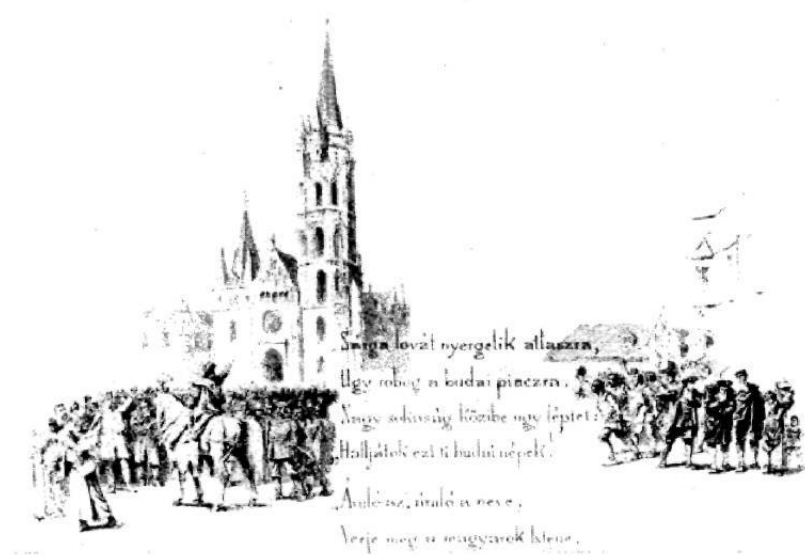 Sárga lovát nyergelik atlaszra,
Ugy robog a budai piaczra.
Nagy sokaság közibe ugy léptet:
„Halljátok ezt ti budai népek!
Áruló az, áruló a neve,
Verje meg a magyarok Istene,